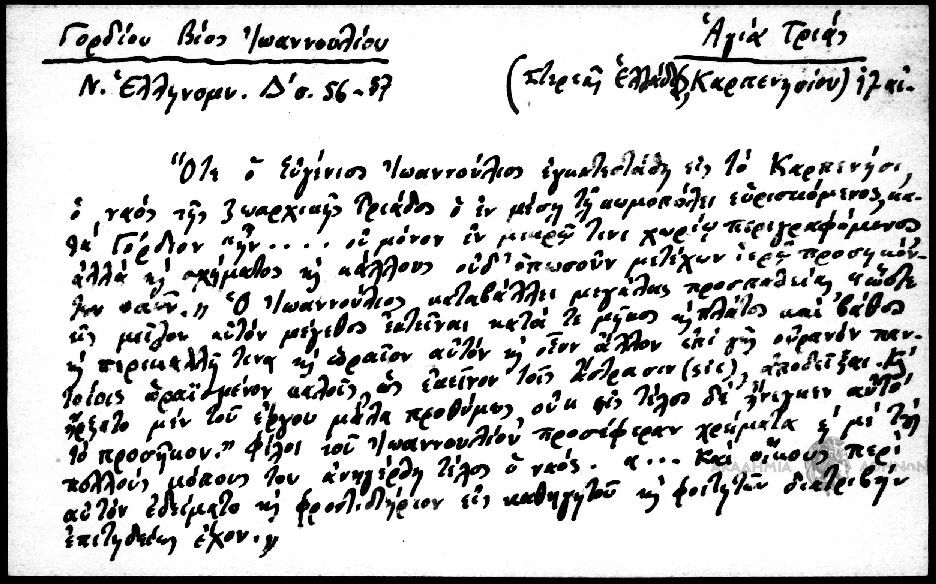 Γορδίου Βίος Ἰωαννουλίου
Ἁγία Τριάς
Ν. Ἑλληνομν. Δ΄ σ. 56-57
(Στερεᾶς Ἑλλάδος, Καρπενησίου) 17 αἰ.
Ὅτε ὁ Εὐγένιος Ἰωαννούλιος ἐγκατεστάθη εἰς τὸ Καρπενήσι,
ὁ ναός τῆς Ζωαρχικῆς Τριάδος ὁ ἐν μέσῃ τῇ κωμοπόλει εὑρισκόμενος, κα-
τὰ Γόρδιον "ἦν .... οὐ μόνον ἐν μικρῷ τινι χωρίῳ περιγραφόμενος
ἀλλὰ κ σχήματος κ κάλλους οὐδ' ὁπωσοῦν μετέχων ἱερῷ προσηκόν-
των ". Ὁ Ἰωαννούλιος καταβάλλει μεγάλας προσπαθείας "ὥστε
εἰς μεῖζον αὐτόν μέγεθος ἐκτεῖναι κατά τε μῆκος κ πλάτος καὶ βάθος
κ περικαλλῆ τινα κ ὡραῖον αὐτόν κ οἷον ἄλλον ἐπί γῆς οὐρανόν παν-
τοίοις ὡραϊσμένον καλοῖς, ὡς ἐκεῖνον τοῖς ἄστρασιν (sic), ἀποδεῖξαι. Κ
ἤρξατο μέν τοῦ ἔργου μάλα προθύμως, οὐκ εἰς τέλος δέ ἤνεγκεν αὐτό
τό προσῆκον." Φίλοι τοῦ Ἰωαννουλίου προσέφεραν χρήματα κ μέ τούς
πολλούς μόχους του ἀνηγέρθη τέλος ὁ ναός. "... Καί οἴκους περί
αὐτόν ἐδείματο κ φροντιστήριον εἰς καθηγητοῦ κ φοιτητῶν διατριβήν
ἐπιτηδείως ἔχον."